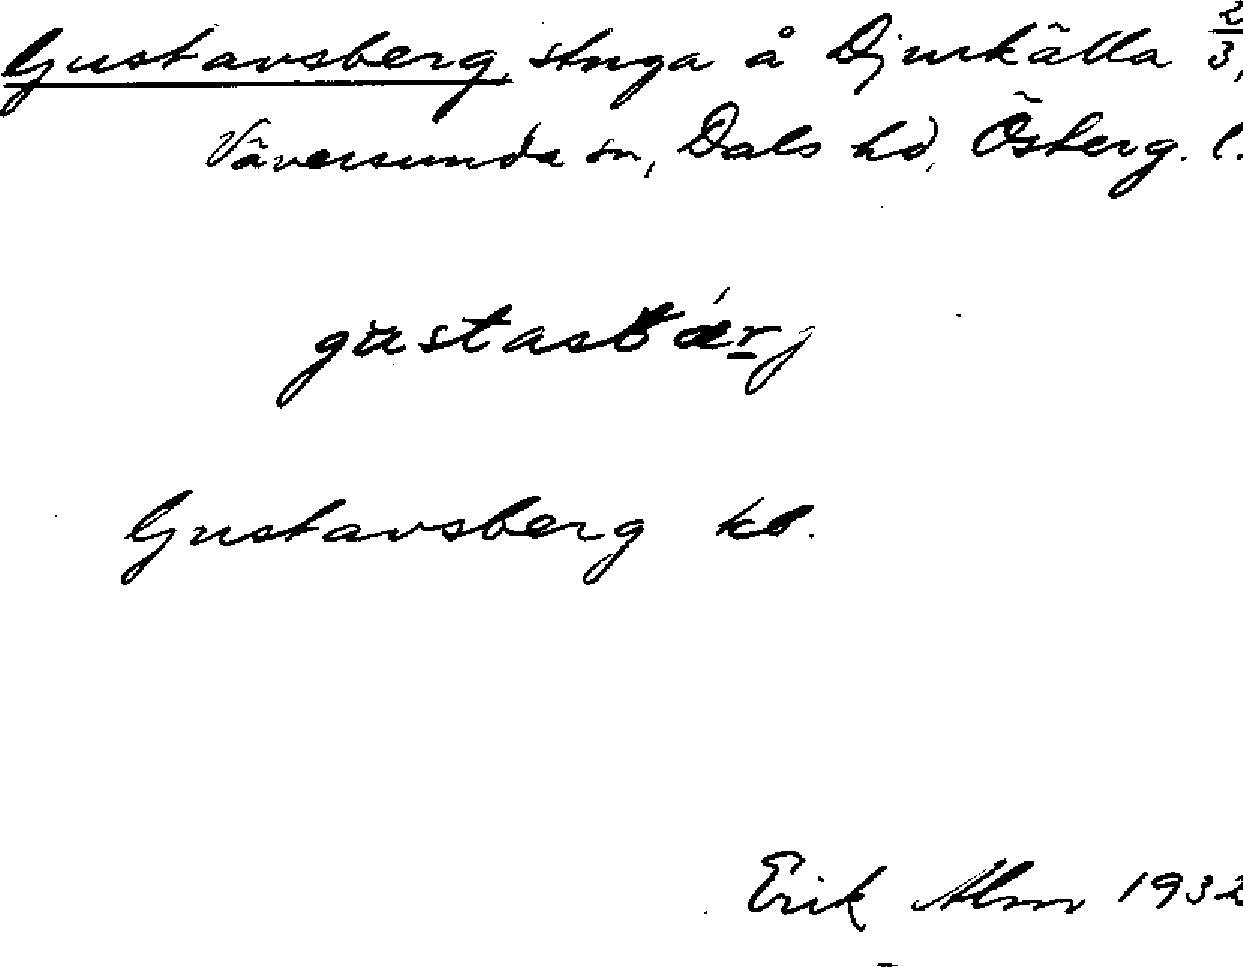 Gustavsberg, stuga å Djurkälla 2/3,
Väversunda sn, Dals hd, Österg. l.
gustasbǽrj
Gustavsberg kb.
Erik Alm 1932